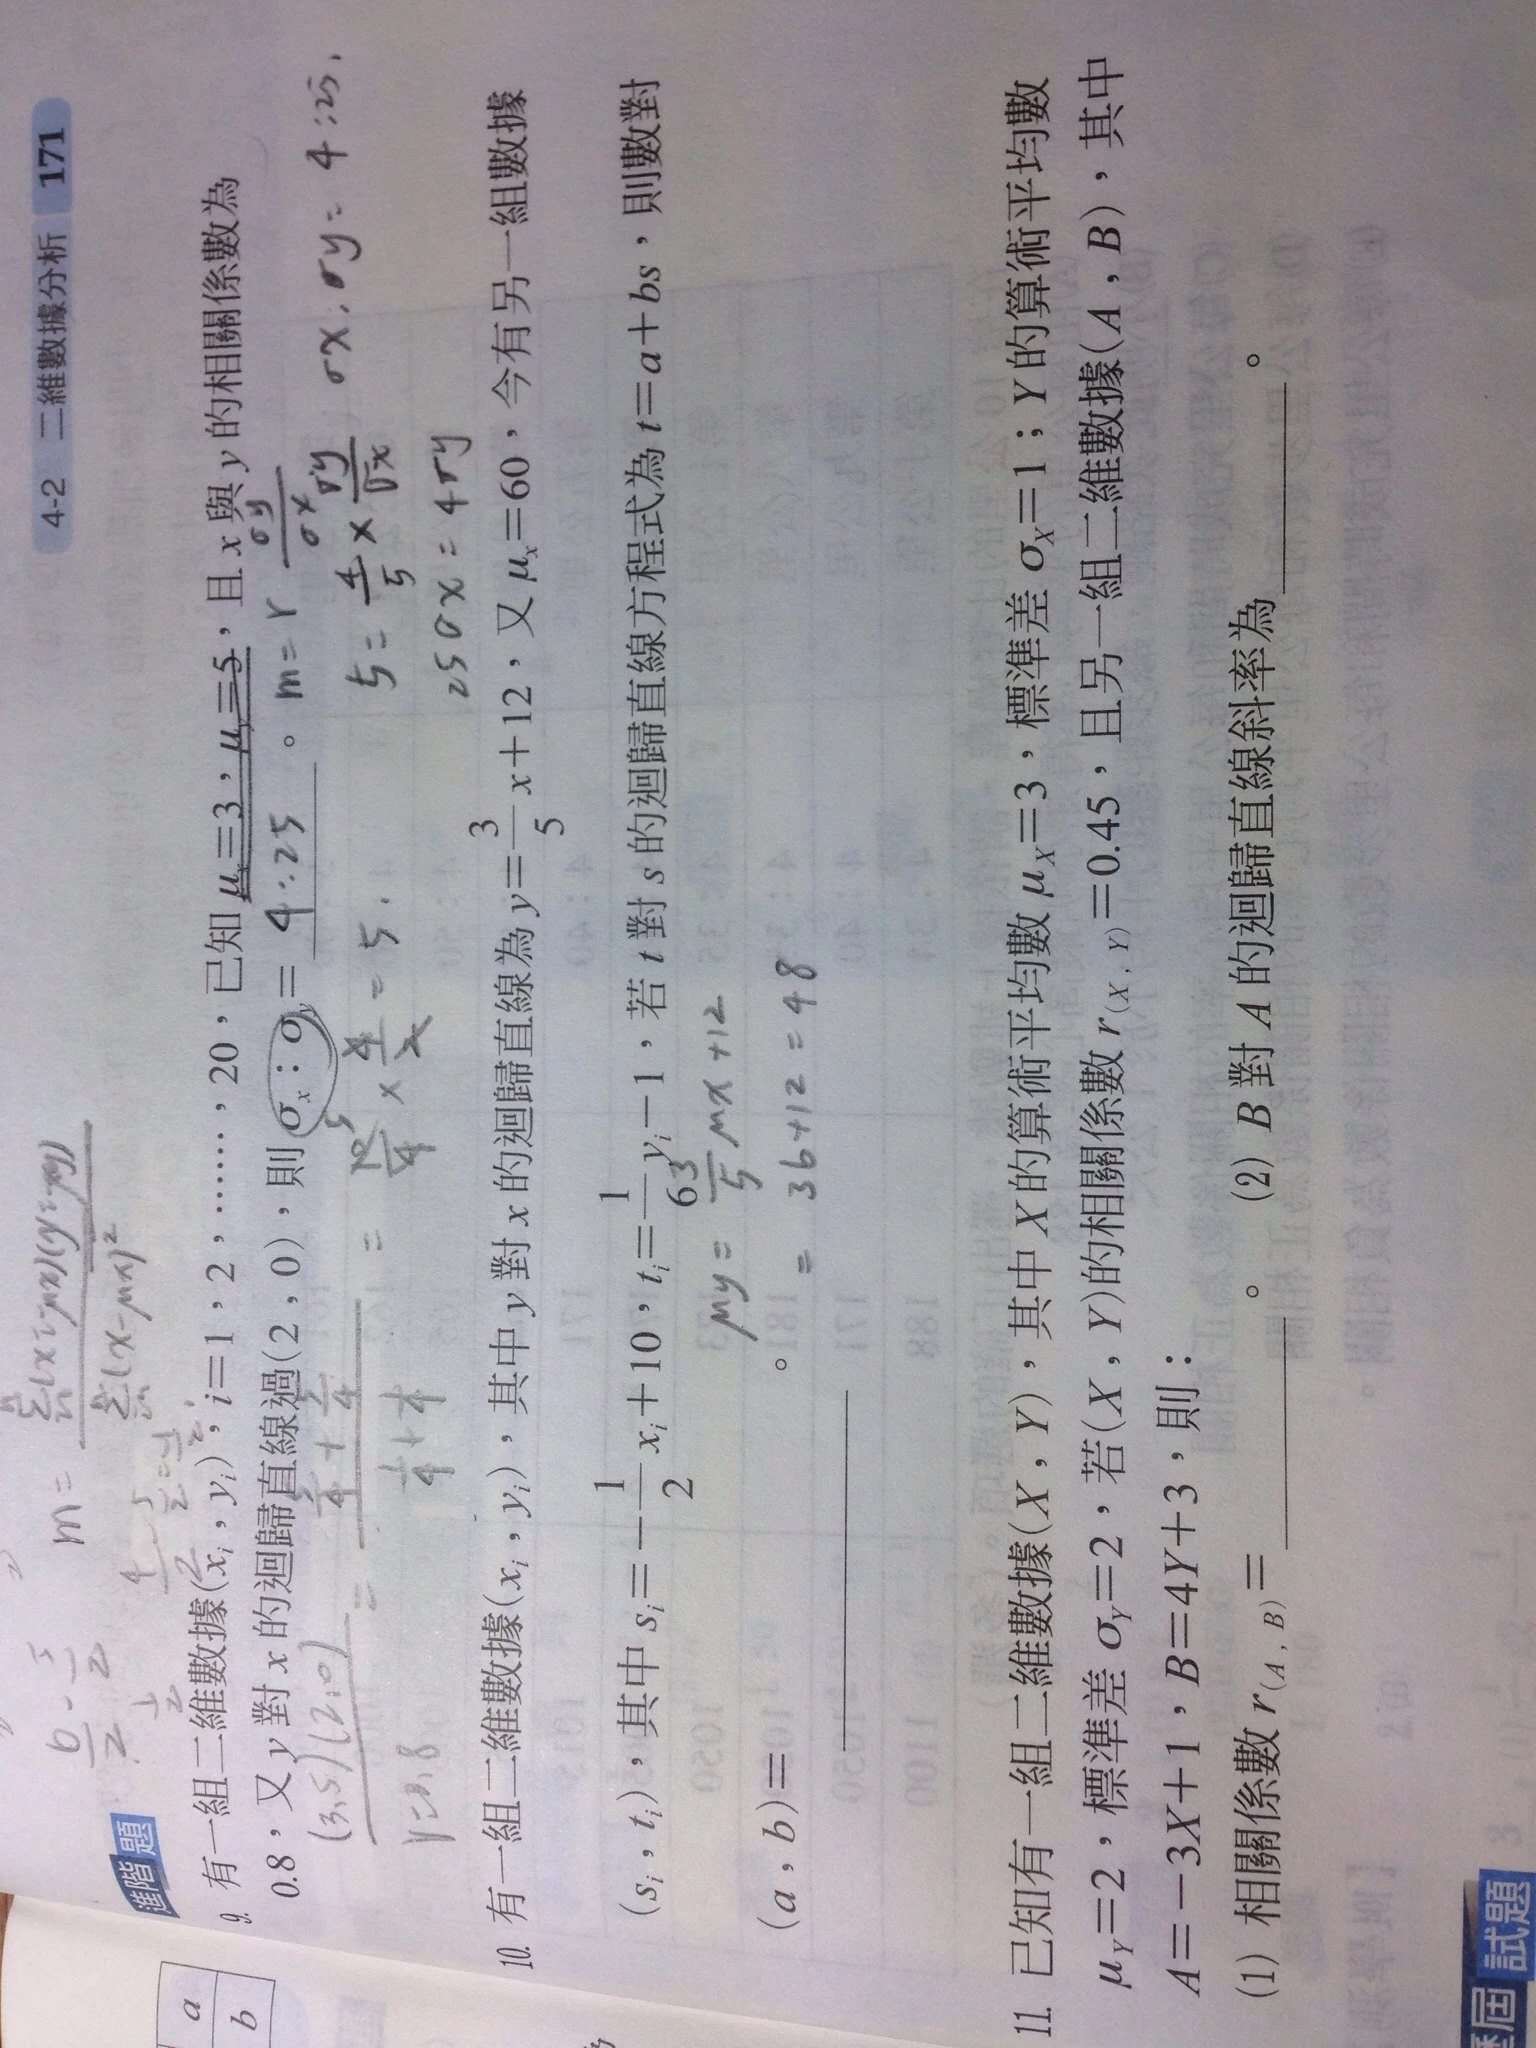 4-2 二維數據分析 171
進階題
9. 有一組二維數據(xᵢ,yᵢ),i=1,2,……,20,已知μₓ=3,μᵧ=5,且x與y的相關係數為
0.8,又y對x的迴歸直線過(2,0),則σₓ:σᵧ= 4:25 。
m= r σy/σx
5= 4/5 × σy/σx
25σx=4σy
σx:σy=4:25.
(3,5)(2,0)
r=0.8
10. 有一組二維數據(xᵢ,yᵢ),其中y對x的迴歸直線為y=3/5 x+12,又μₓ=60,今有另一組數據
(sᵢ,tᵢ),其中sᵢ=-1/2 xᵢ+10,tᵢ=1/6 yᵢ-1,若t對s的迴歸直線方程式為t=a+bs,則數對
(a,b)=______。
μy= 3/5 μx+12
= 36+12=48
11. 已知有一組二維數據(X,Y),其中X的算術平均數μX=3,標準差σX=1;Y的算術平均數
μY=2,標準差σY=2,若(X,Y)的相關係數r(X,Y)=0.45,且另一組二維數據(A,B),其中
A=-3X+1,B=4Y+3,則:
(1) 相關係數r(A,B)=______。 (2) B對A的迴歸直線斜率為______。
歷屆試題
a
b